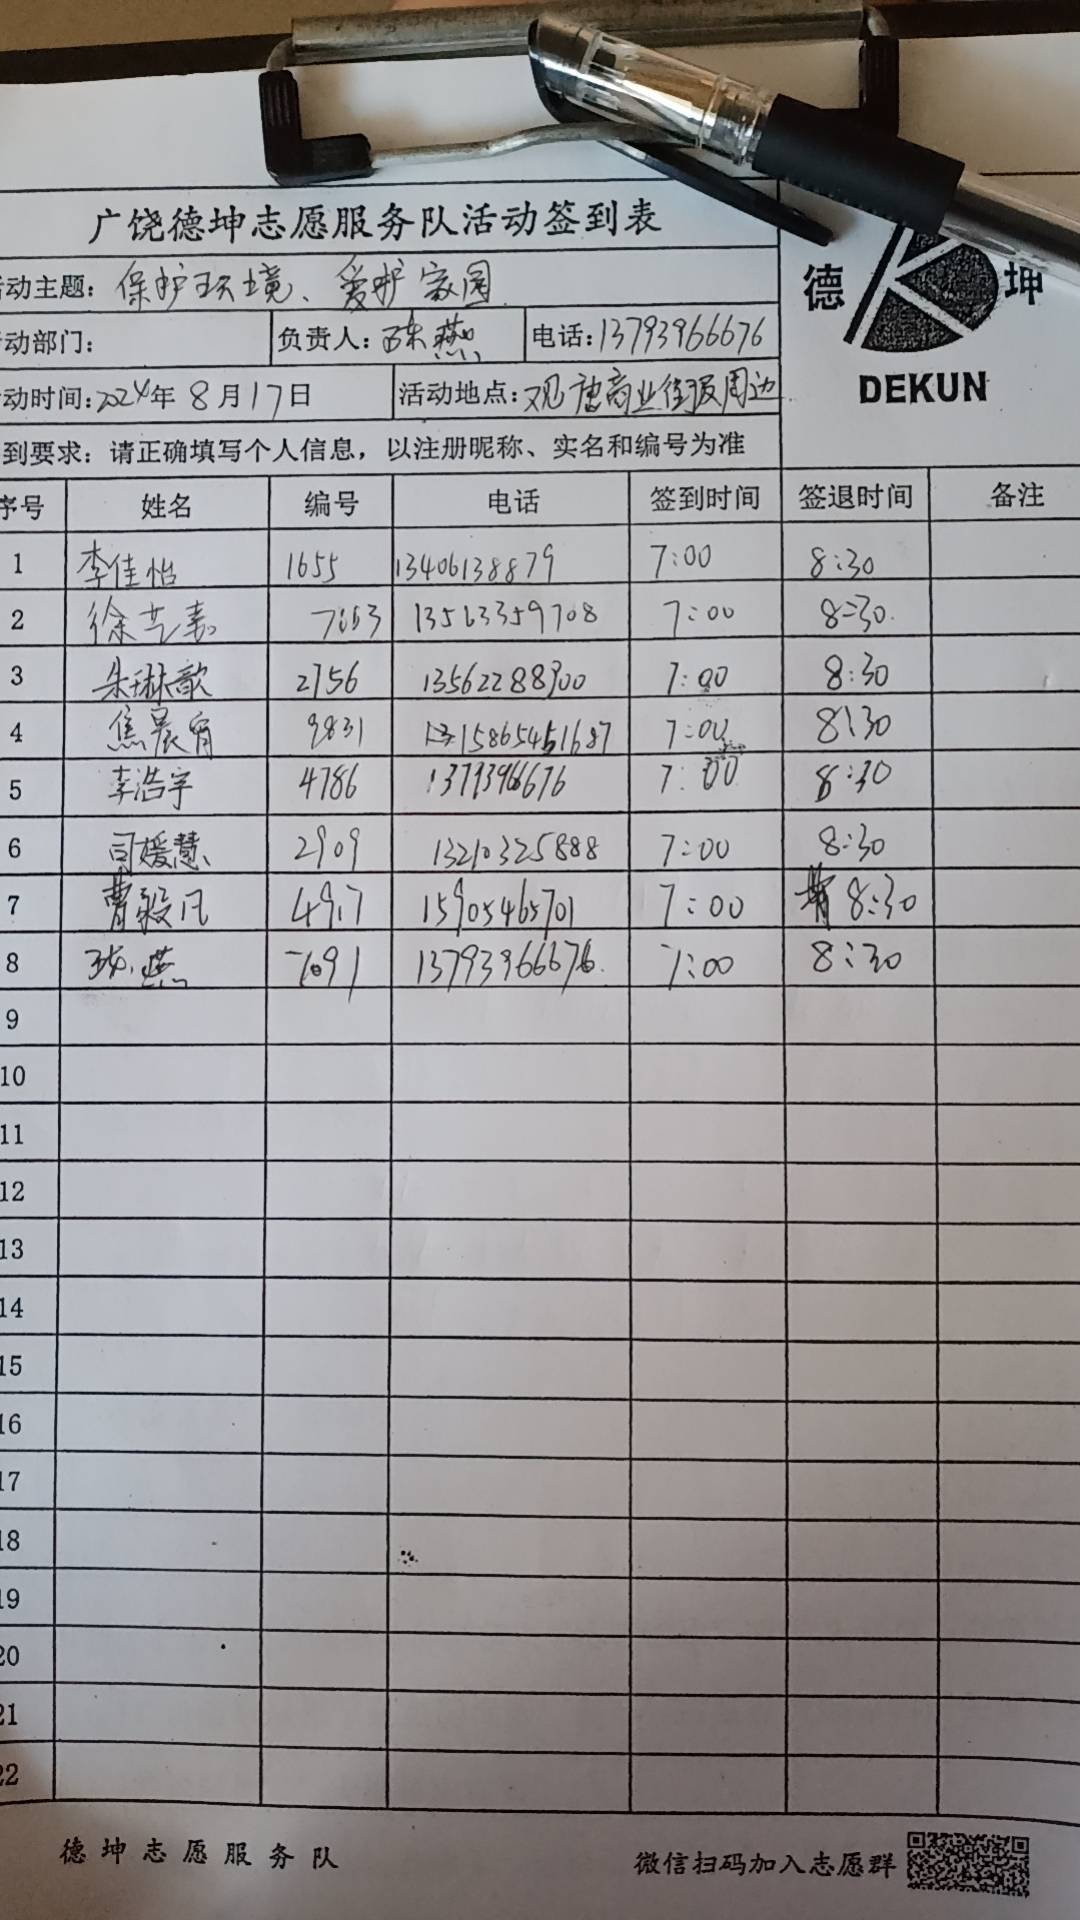 广饶德坤志愿服务队活动签到表
德 坤
DEKUN
活动主题：保护环境、爱护家园
活动部门： 负责人： 燕 电话：13793966676
动时间：2024年8月17日 活动地点：观唐商业街及周边
到要求：请正确填写个人信息，以注册昵称、实名和编号为准
序号 姓名 编号 电话 签到时间 签退时间 备注
1 李佳怡 1655 13406138879 7:00 8:30
2 徐艺嘉 7663 13563359708 7:00 8:30
3 朱琳歆 2756 13562288900 7:00 8:30
4 焦晨宵 9831 15865451687 7:00 8:30
5 李浩宇 4786 13793966676 7:00 8:30
6 司媛慧 2909 13210325888 7:00 8:30
7 曹毅凡 4917 15905465701 7:00 8:30
8 燕 7691 13793966676 7:00 8:30
9
10
11
12
13
14
15
16
17
18
19
20
21
22
德坤志愿服务队 微信扫码加入志愿群